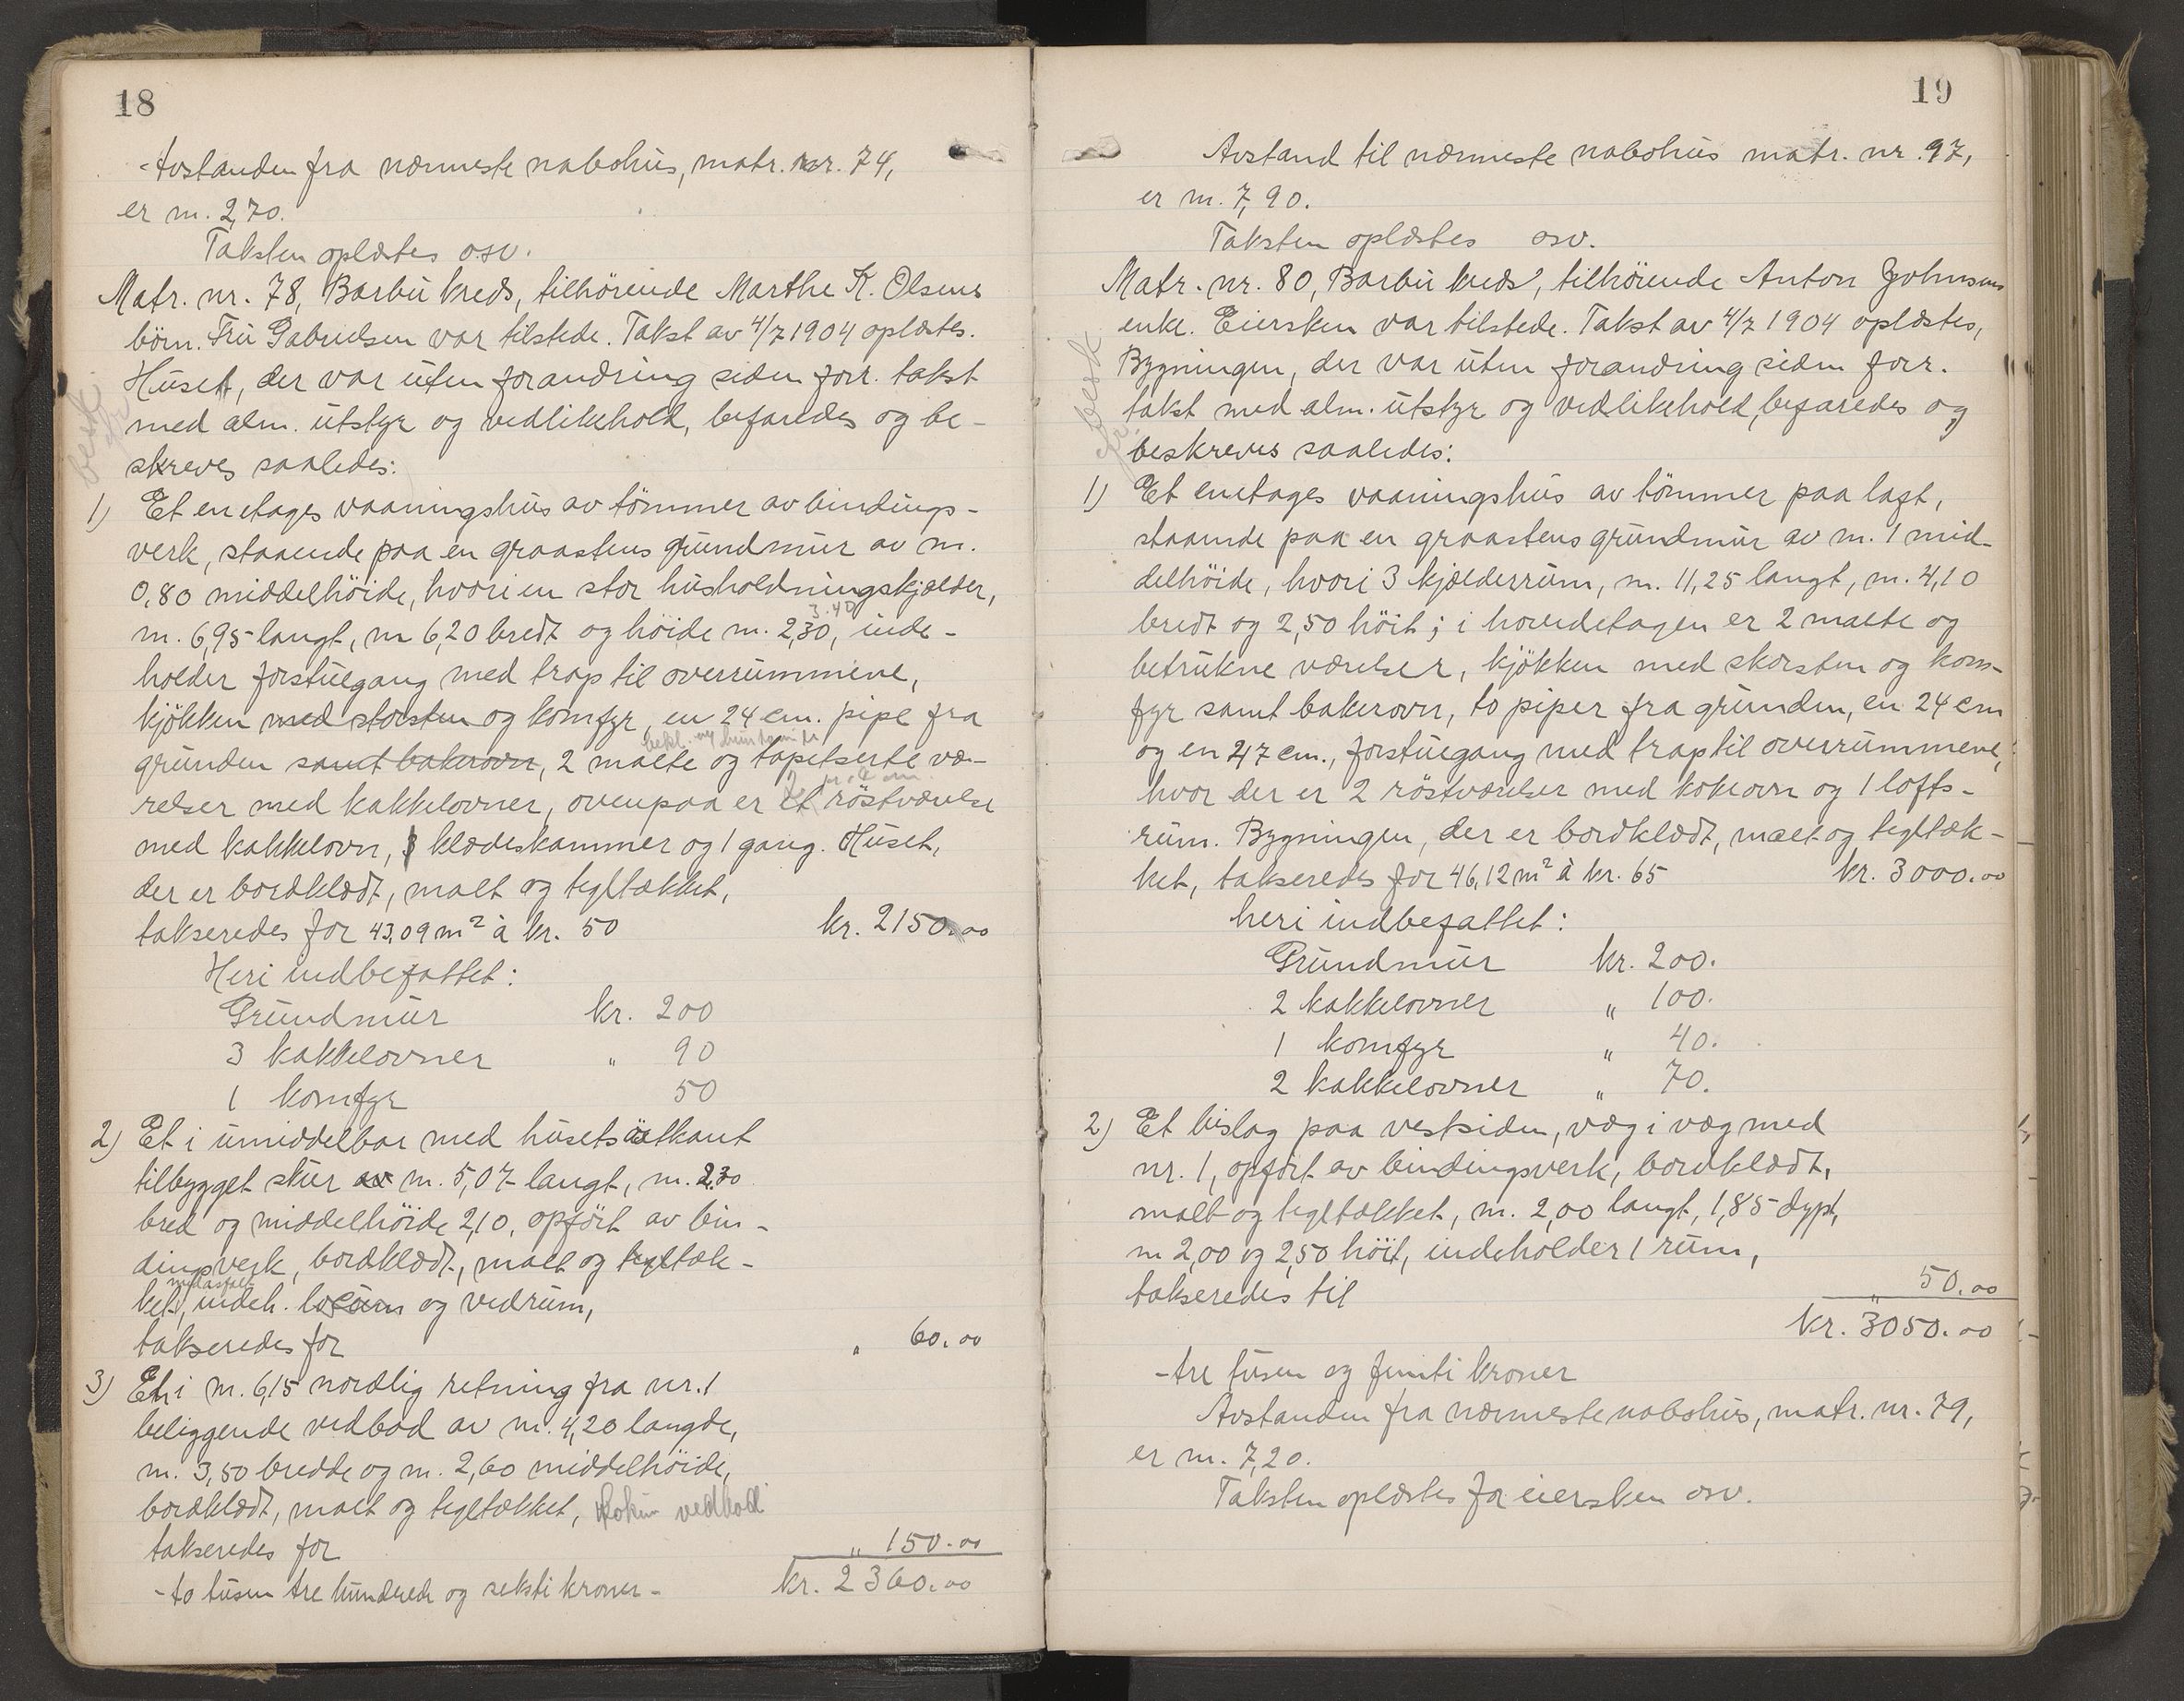 18
Avstanden fra nærmeste nabohus, matr. nr. 74,
er m. 2,70.
Taksten oplæstes osv.
Matr. nr. 78, Barbu kreds, tilhörende Marthe K. Olsens
börn. Fru Gabrielsen var tilstede. Takst av 4/7 1904 oplæstes.
Huset, der var uten forandring siden forr. takst
med alm. utstyr og vedlikehold, befaredes og be-
skreves saaledes:
besk
1) Et enetages vaaningshus av tömmer av bindings-
verk, staaende paa en graastens grundmur av m.
0,80 middelhöide, hvori en stor husholdningskjælder,
3.40
m. 6,95 langt, m 6,20 bredt og höide m. 2,30, inde-
holder forstuegang med trap til overrummene,
kjökken med skorsten og komfyr, en 24 cm. pipe fra
grunden samt bakerovn, 2 malte og tapetserte væ-
relser med kakkelovner, ovenpaa er et röstværelse
med kakkelovn, 3 klædeskammer og 1 gang. Huset,
der er bordklædt, malt og tegltækket,
takseredes for 43,09 m² à kr. 50 kr. 2150.00
Heri indbefattet:
Grundmur kr. 200
3 kakkelovner " 90
1 komfyr 50
2) Et i umiddelbar med husets östkant
tilbygget skur av m. 5,07 langt, m. 2,30
bred og middelhöide 2,10, opfört av bin-
dingsverk, bordklædt, malt og tegltæk-
med asfalt
ket, indeh. locum og vedrum,
takseredes for " 60.00
3) En i m. 6,15 nordlig retning fra nr. 1
beliggende vedbod av m. 4,20 længde,
m. 3,50 bredde og m. 2,60 middelhöide,
bordklædt, malt og tegltækket, Lokum vedbod
takseredes for " 150.00
- to tusen tre hundrede og seksti kroner - kr. 2360.00
19
Avstand til nærmeste nabohus matr. nr. 97,
er m. 7,90.
Taksten oplæstes osv.
Matr. nr. 80, Barbu kreds, tilhörende Anton Johnsens
enke. Eiersken var tilstede. Takst av 4/7 1904 oplæstes,
Bygningen, der var uten forandring siden forr.
takst med alm. utstyr og vedlikehold, befaredes og
beskreves saaledes:
besk
1) Et enetages vaaningshus av tömmer paa laft,
staaende paa en graastens grundmur av m. 1 mid-
delhöide, hvori 3 kjælderrum, m. 11,25 langt, m. 4,10
bredt og 2,50 höit; i hovedetagen er 2 malte og
betrukne værelser, kjökken med skorsten og kom-
fyr samt bakerovn, to piper fra grunden, en 24 cm
og en 47 cm., forstuegang med trap til overrummene,
hvor der er 2 röstværelser med kokeovn og 1 lofts-
rum. Bygningen, der er bordklædt, malt og tegltæk-
ket, takseredes for 46,12 m² à kr. 65 kr. 3000.00
heri indbefattet:
Grundmur kr. 200.
2 kakkelovner " 100.
1 komfyr " 40.
2 kakkelovner " 70.
2) Et bislag paa vestsiden, væg i væg med
nr. 1, opfört av bindingsverk, bordklædt,
malt og tegltækket, m. 2,00 langt, 1,85 dypt,
m 2,00 og 2,50 höit, indeholder 1 rum,
takseredes til " 50.00
kr. 3050.00
- tre tusen og femti kroner
Avstanden fra nærmeste nabohus, matr. nr. 79,
er m. 7,20.
Taksten oplæstes for eiersken osv.